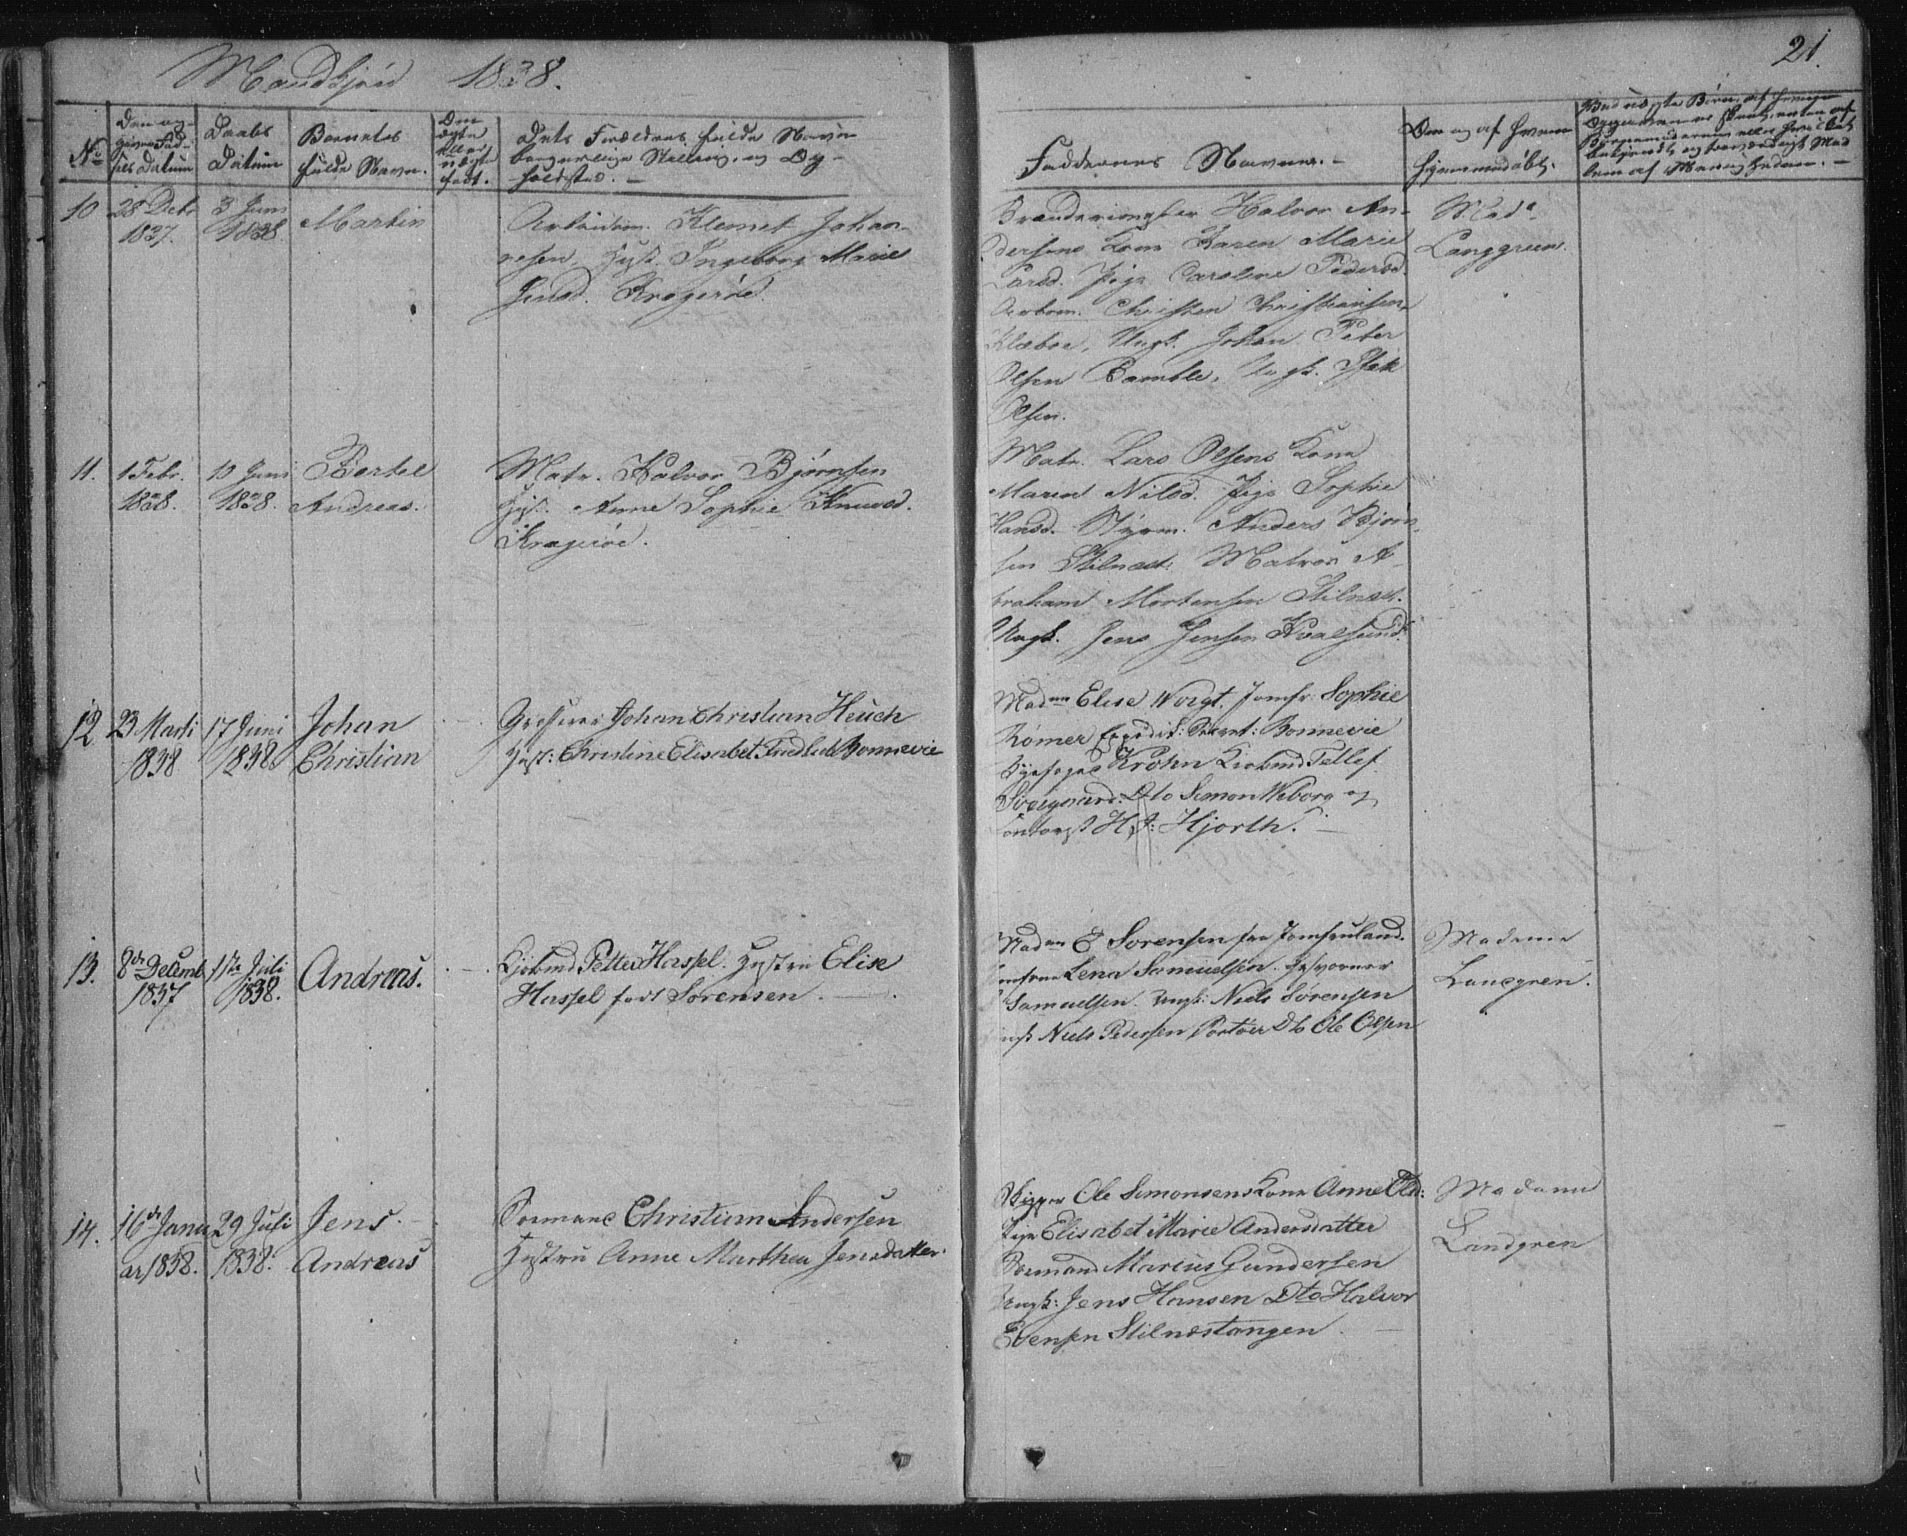 Mandkjøn 1838.
21.
No
Den an-
givne Fød-
sels Datum
Daabs
Datum
Barnets
fulde Navn.
Om
ægte
eller
uægte
født.
Dets Forældres fulde Navn
borgerlige Stilling, og Op-
holdsted. –
Faddernes Navne. –
Om og af hvem
hjemmedøbt.
10
28 Decbr
1837.
3 Juni
1838.
Martin
Arbeidsm. Klemet Johan-
nesen, Hust. Ingeborg Marie
Jensd. Kragerøe.
Halvor An-
dersens Kone Karen Marie
Larsd. Pige Caroline Pedersd.
Arbm. Christen Christiansen
Klæboe, Ungk. Johan Peter
Olsen Bamble, Ungk. Isak
Olsen.
Made
Langgreen.
11.
1 Febr.
1838.
10 Juni
1838.
Bertel
Andreas.
Matr. Halvor Bjørnsen
Hust. Anne Sophie Knudsd.
Kragerøe.
Matr. Lars Olsens Kone
Maren Nilsd. Pige Sophie
Hansd. Styrm. Anders Bjørn-
sen Stilnæst: Matros A-
braham Mortensen Stilnæst.
Ungk. Jens Jensen Kvalsund.
12
23 Marti
1838
17 Juni
1838.
Johan
Christian
Grosserer Johan Christian Heuch
Hust: Christine Elisabet Bonnevie
Madam Elise Voigt. Jomfr. Sophie
Rømer Expedit: Secret: Bonnevie
Byefoged Krohn Kjøbmd Tellef
Dto Simon Wiborg og
Hjorth.
13.
8de Decemb
1837
1ste Juli
1838.
Andreas.
Kjøbmd Petter Hassel. Hustru Elise
Hassel født Sørensen.
Madam E Sørensen fra Jomfruland.
Jomfrue Lena Samuelsen.
Samuelsen. Ungk: Niels Sørensen
Niels Pedersen Portøer Dto Ole Olsen
Madame
Lancgren.
14.
16de Janu
ar 1838.
29 Juli
1838.
Jens
Andreas
Formand Christian Andersen
Hustru Anne Marthea Jensdatter.
Skipper Ole Simonsens Kone Anne Old:
Pige Elisabet Marie Andersdatter
Formand Marius Gundersen
Ungk: Jens Hansen Dto Halvor
Evensen Stilnæstangen
Madame
Landgren